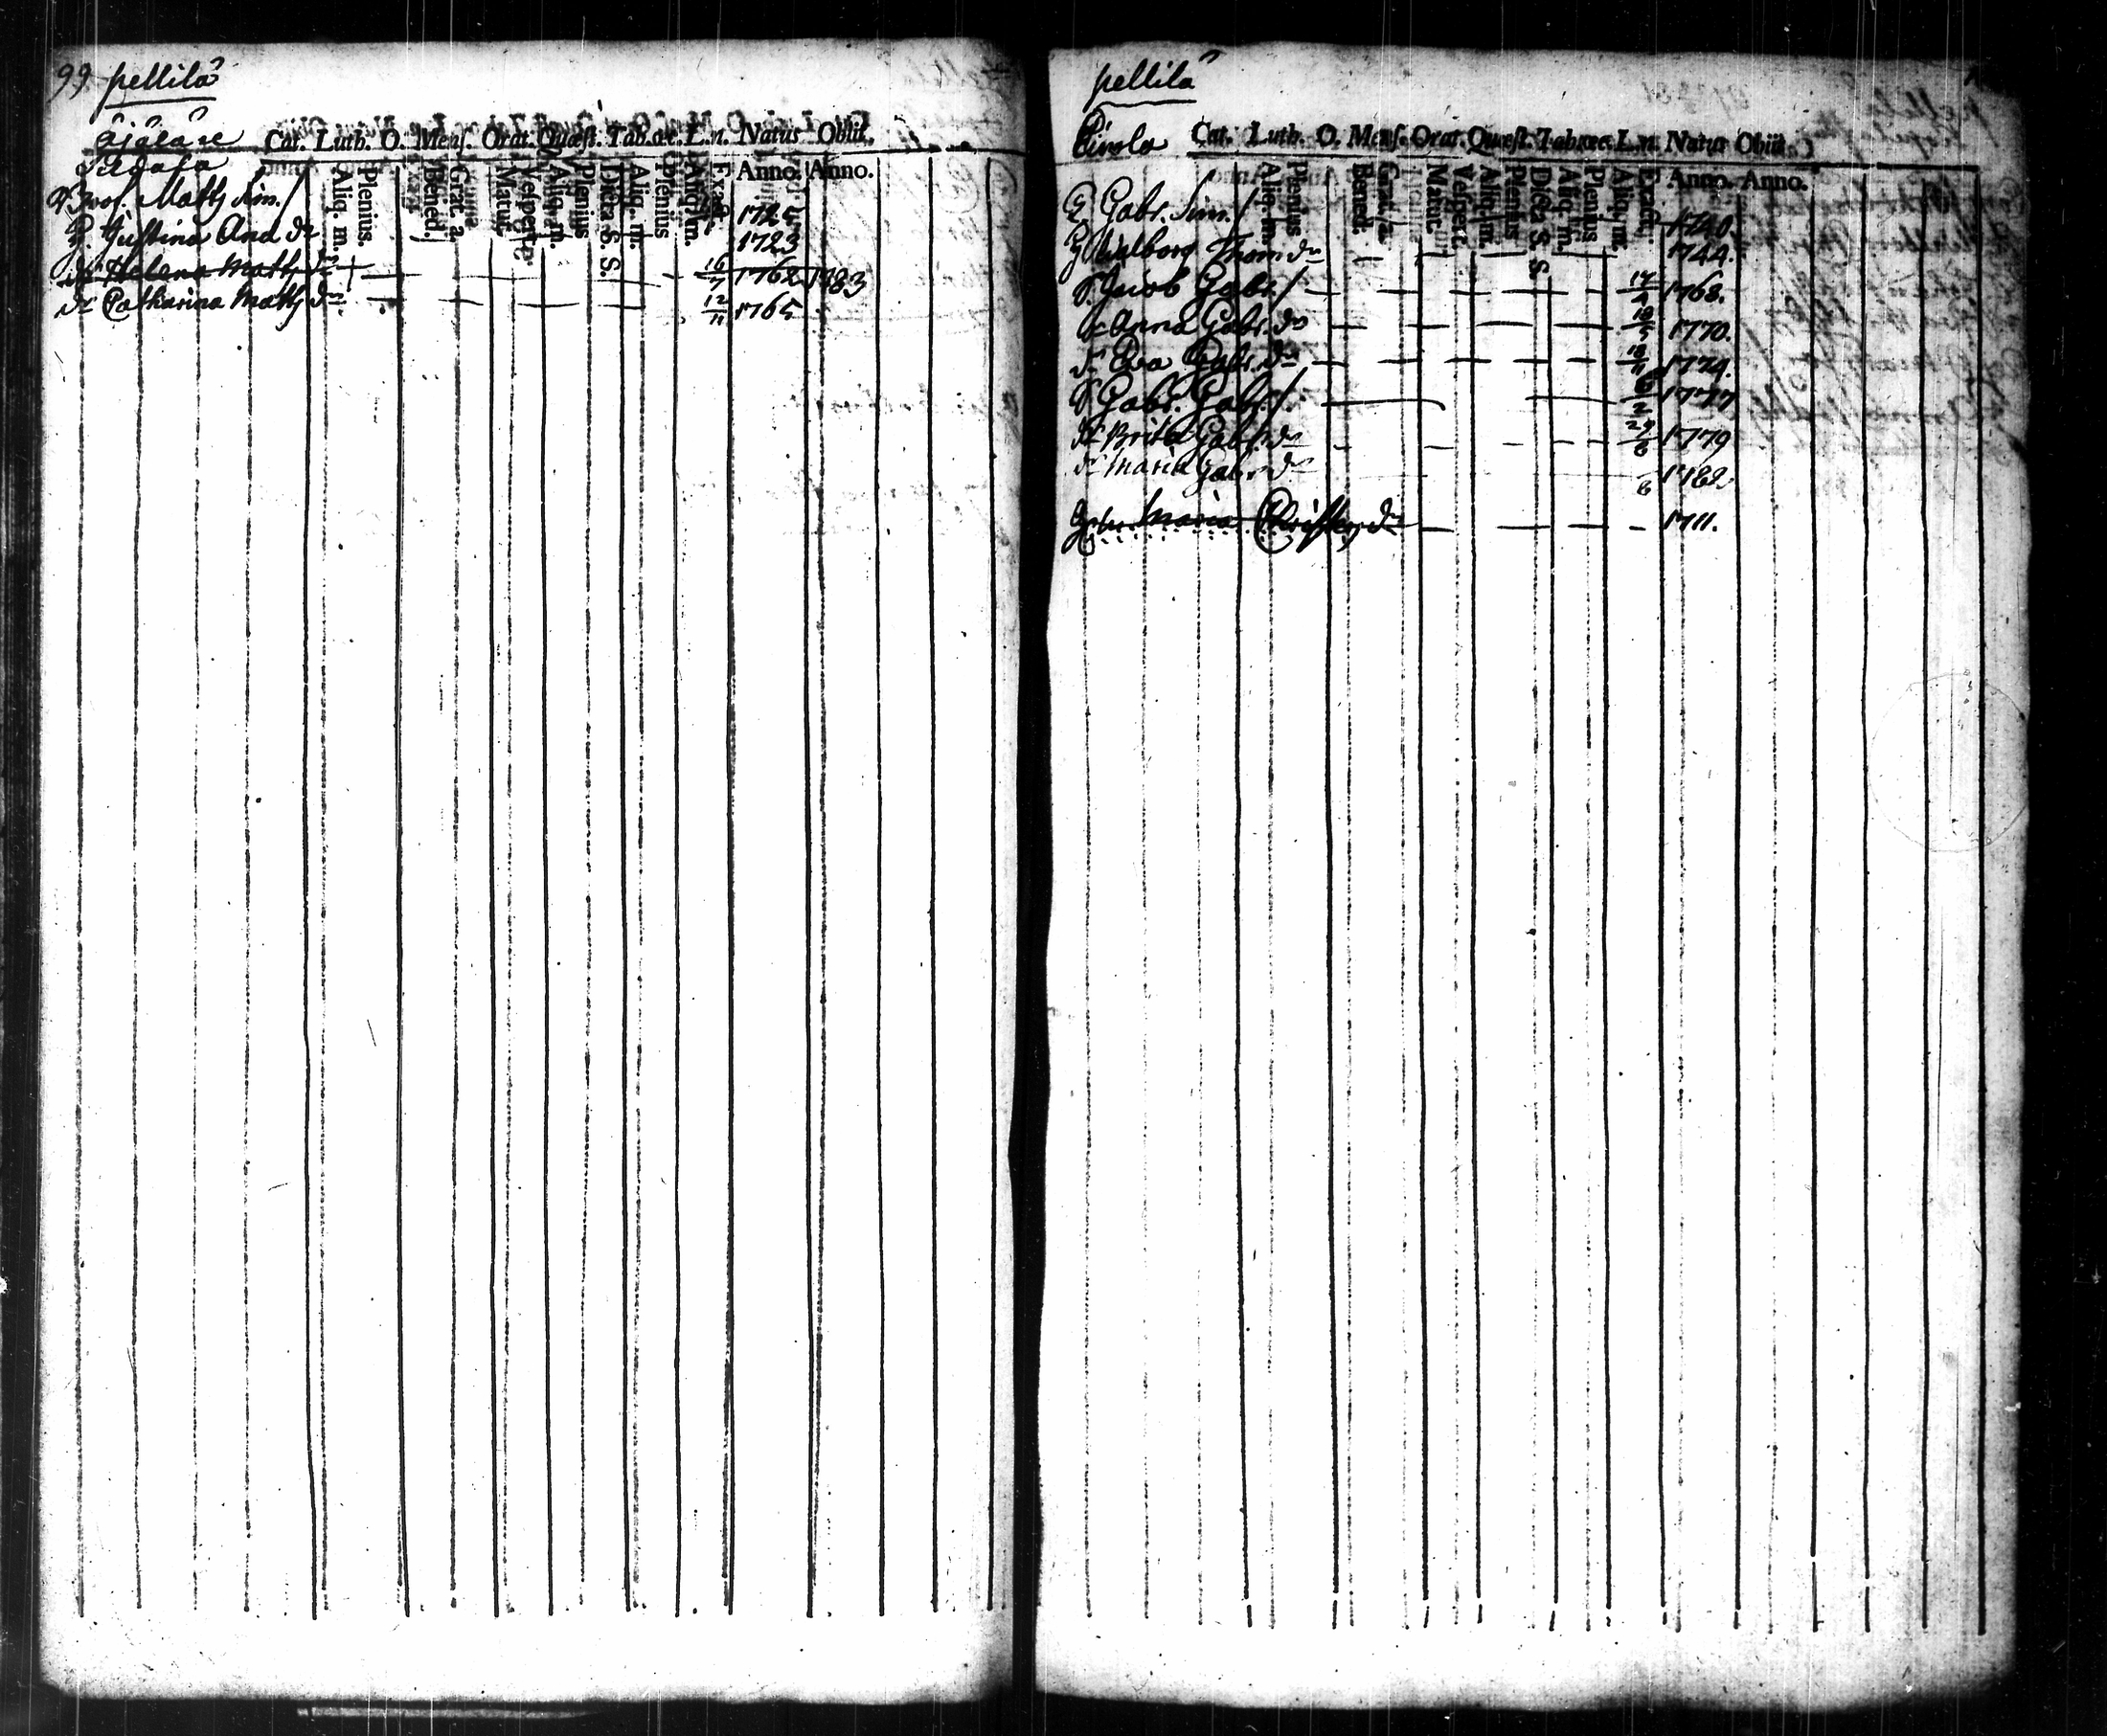 99 pellilä
Äjälä
Cat. Luth. O. Mens. Orat. Quæst. Tab. œc. L. n. Natus Obiit.
Aliq. m. Plenius. Bened. Grat. a. Matut. Vespert. Aliq. m. Plenius Dicta S. S. Aliq. m. Plenius Aliq. m. Exact. Anno. Anno.
Matth Sim. 1725
H. Justina And dr 1723
dr Helena Math dr 16/7 1762 1783
dr Catharina Math dr 12/11 1765
pellilä
Cat. Luth. O. Mens. Orat. Quæst. Tab. œc. L. n. Natus Obiit.
Aliq. m. Plenius Bened. Grat. a. Matut. Vespert. Aliq. m. Plenius Dicta S. S. Aliq. m. Plenius Aliq. m. Exact. Anno. Anno.
Gabr. Sim. 1740.
H Walborg Thom dr 1744.
S. Jacob Gabr. 17/4 1768.
dr Anna Gabr. dr 18/5 1770.
dr Eva Gabr. dr 1774.
S Gabr. Gabr. 1777
dr Brita Gabr. dr 29/8 1779
dr Maria Gabr. dr 1782
Maria Christer dr 1711.